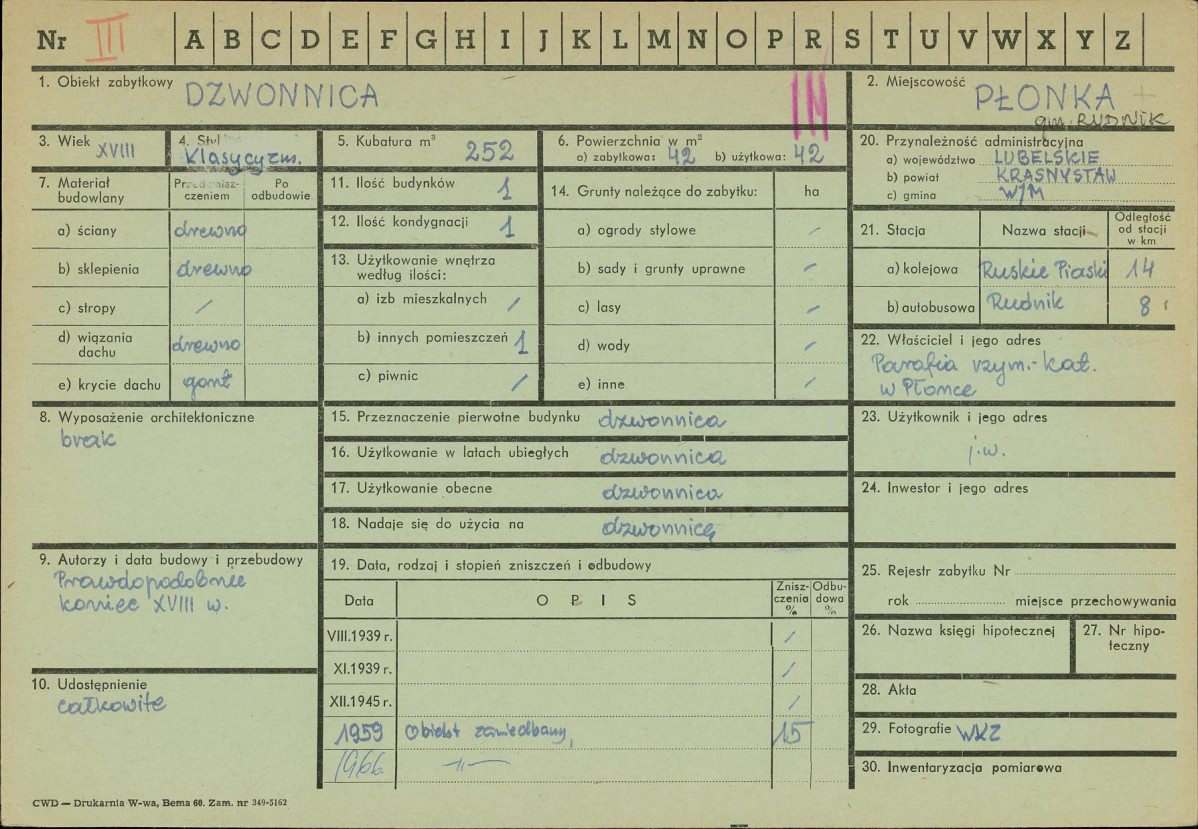 Nr III A B C D E F G H I J K L M N O P R S T U V W X Y Z
1. Obiekt zabytkowy DZWONNICA
2. Miejscowość PŁONKA
gm. RUDNIK
3. Wiek XVIII
4. Styl Klasycyzm.
5. Kubatura m³ 252
6. Powierzchnia w m²
a) zabytkowa: 42 b) użytkowa: 42
20. Przynależność administracyjna
a) województwo LUBELSKIE
b) powiat KRASNYSTAW
c) gmina W/M
7. Materiał budowlany
Przed znisz-
czeniem
Po
odbudowie
a) ściany drewno
b) sklepienia drewno
c) stropy /
d) wiązania
dachu drewno
e) krycie dachu gont
11. Ilość budynków 1
12. Ilość kondygnacji 1
13. Użytkowanie wnętrza
według ilości:
a) izb mieszkalnych /
b) innych pomieszczeń 1
c) piwnic /
14. Grunty należące do zabytku: ha
a) ogrody stylowe /
b) sady i grunty uprawne /
c) lasy /
d) wody /
e) inne /
21. Stacja Nazwa stacji
Odległość
od stacji
w km
a) kolejowa Ruskie Piaski 14
b) autobusowa Rudnik 8
22. Właściciel i jego adres
Parafia rzym.-kat.
w Płonce
8. Wyposażenie architektoniczne
brak
15. Przeznaczenie pierwotne budynku dzwonnica
16. Użytkowanie w latach ubiegłych dzwonnica
17. Użytkowanie obecne dzwonnica
18. Nadaje się do użycia na dzwonnicę
23. Użytkownik i jego adres
j.w.
24. Inwestor i jego adres
9. Autorzy i data budowy i przebudowy
Prawdopodobnie
koniec XVIII w.
10. Udostępnienie
całkowite
19. Data, rodzaj i stopień zniszczeń i odbudowy
Data OPIS
Znisz-
czenia
%
Odbu-
dowa
%
VIII.1939 r. /
XI.1939 r. /
XII.1945 r. /
1959 Obiekt zaniedbany, 15
1966 -"-
25. Rejestr zabytku Nr
rok miejsce przechowywania
26. Nazwa księgi hipotecznej
27. Nr hipo-
teczny
28. Akta
29. Fotografie WKZ
30. Inwentaryzacja pomiarowa
CWD — Drukarnia W-wa, Bema 60. Zam. nr 349-5162